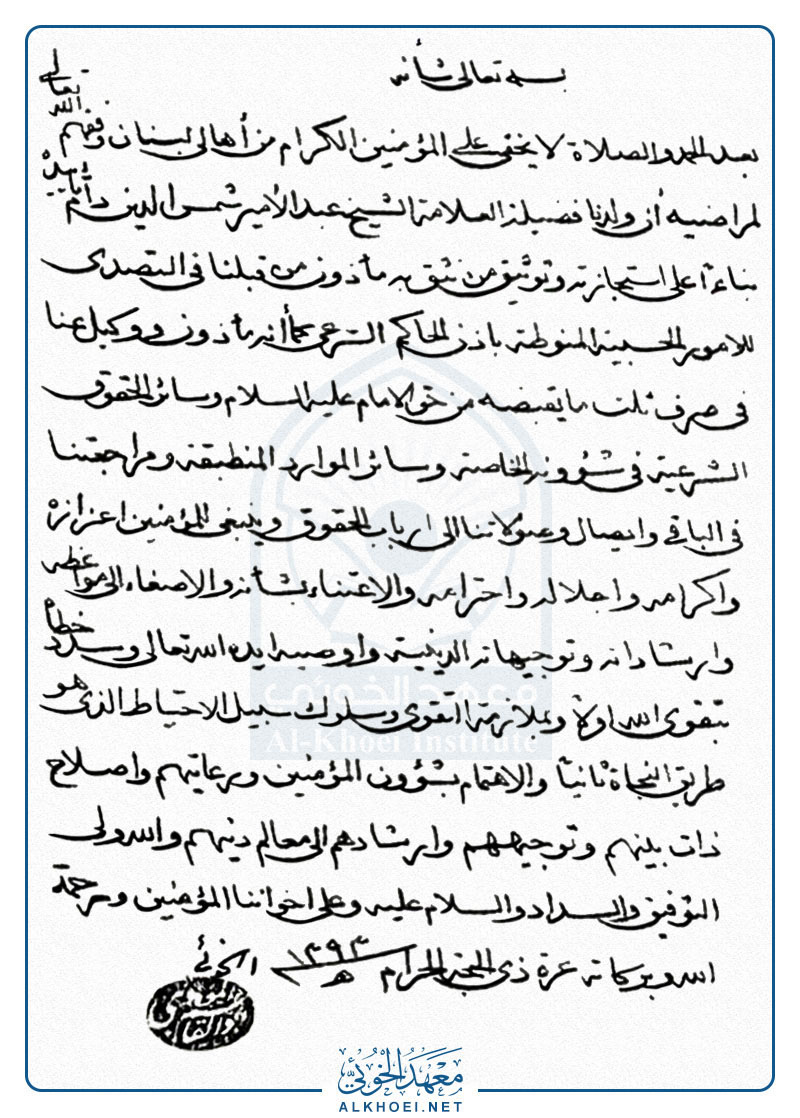 بسمه تعالى شأنه
بعد الحمد والصلاة لا يخفى على المؤمنين الكرام من أهالي لبنان وفقهم الله تعالى
لمراضيه أن ولدنا فضيلة العلامة الشيخ عبد الأمير شمس الدين دام تأييده
بناءً على استجازته وتوثيق من نثق به مأذون من قبلنا في التصدى
للامور الحسبية المنوطة باذن الحاكم الشرعي كما أنه مأذون ووكيل عنا
في صرف ثلث ما يقبضه من حق الامام عليه السلام وسائر الحقوق
الشرعية في شؤونه الخاصة وسائر الموارد المنطبقة ومراجعتنا
في الباقي وايصال وصولاتنا الى ارباب الحقوق وينبغي للمؤمنين اعزازه
واكرامه واجلاله واحترامه والاعتناء بشأنه والاصغاء الى مواعظه
وارشاداته وتوجيهاته الدينية واوصيه ايده الله تعالى وسدد خطاه
بتقوى الله اولاً وبملازمة التقوى وسلوك سبيل الاحتياط الذى هو
طريق النجاة ثانياً والاهتمام بشؤون المؤمنين ورعايتهم واصلاح
ذات بينهم وتوجيههم وارشادهم الى معالم دينهم والله ولى
التوفيق والسداد والسلام عليه وعلى اخواننا المؤمنين ورحمة
الله وبركاته غرة ذى الحجة الحرام ١٣٩٣ هـ الخوئي
معهد الخوئي
Al-Khoei Institute
معهد الخوئي
ALKHOEI.NET